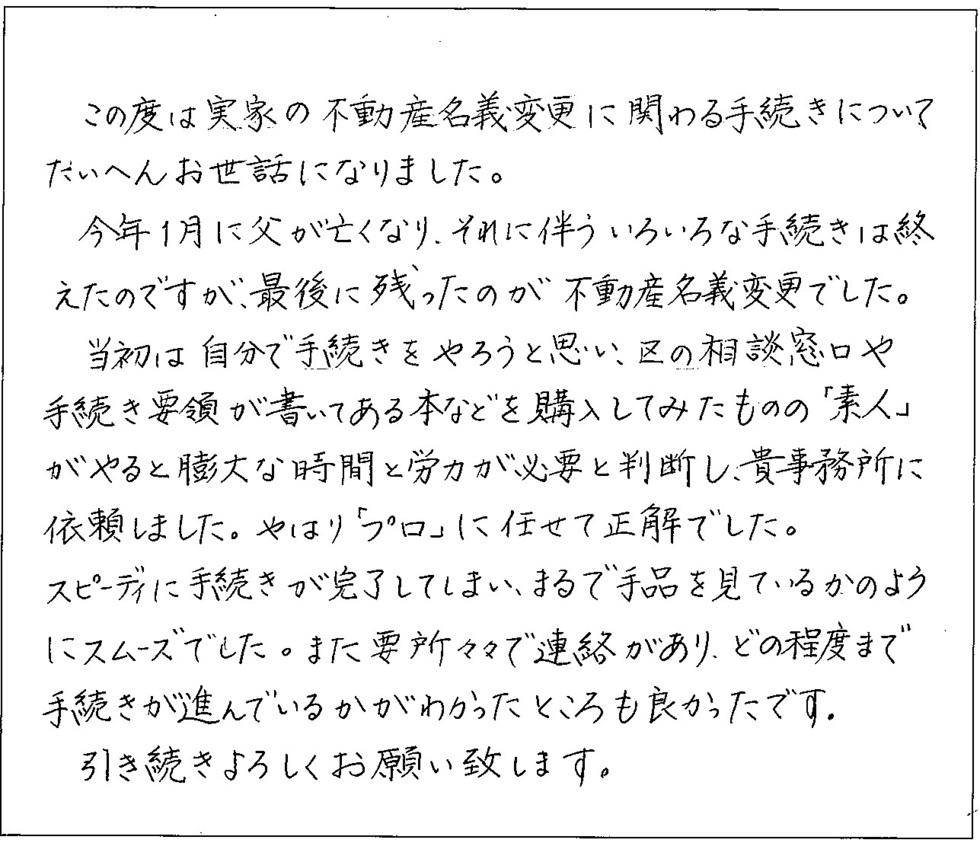 この度は実家の不動産名義変更に関わる手続きについて
たいへんお世話になりました。
今年1月に父が亡くなり、それに伴ういろいろな手続きは終
えたのですが、最後に残ったのが不動産名義変更でした。
当初は自分で手続きをやろうと思い、区の相談窓口や
手続き要領が書いてある本などを購入してみたものの「素人」
がやると膨大な時間と労力が必要と判断し、貴事務所に
依頼しました。やはり「プロ」に任せて正解でした。
スピーディに手続きが完了してしまい、まるで手品を見ているかのよう
にスムーズでした。また要所々々で連絡があり、どの程度まで
手続きが進んでいるかがわかったところも良かったです。
引き続きよろしくお願い致します。